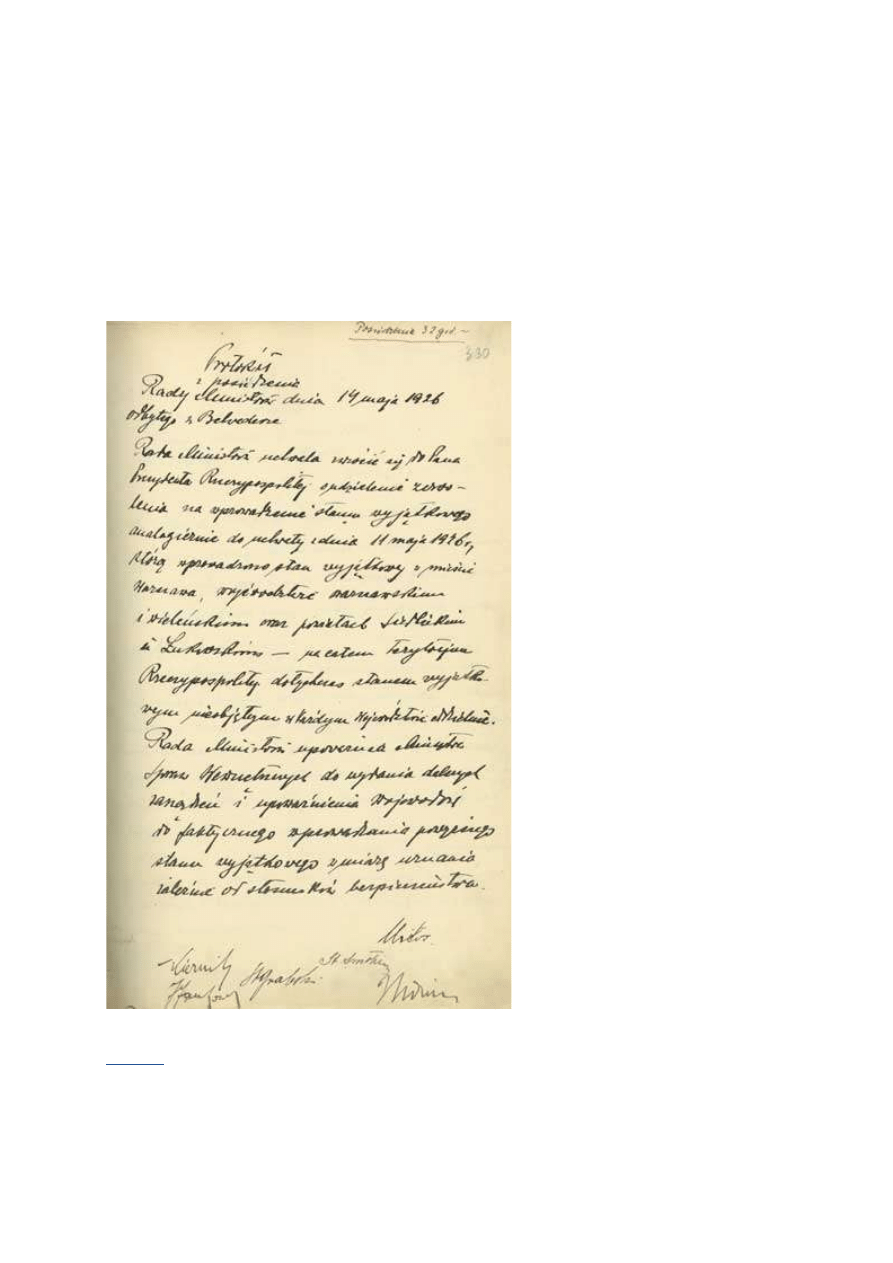 Posiedzenie 32 god. –
330
Protokół
z posiedzenia
Rady Ministrów dnia 14 maja 1926
odbytego w Belvederze
Rada Ministrów uchwala zwrócić się do Pana
Prezydenta Rzeczypospolitej o udzielenie zezwo-
lenia na wprowadzenie stanu wyjątkowego
analogicznie do uchwały z dnia 11 maja 1926 r,
którą wprowadzono stan wyjątkowy w mieście
Warszawa, województwie warszawskiem
i wileńskiem oraz powiatach Siedleckim
i Łukowskim — na całem terytorjum
Rzeczypospolitej dotychczas stanem wyjątko-
wym nieobjętym w każdym województwie oddzielnie.
Rada Ministrów upoważnia Ministra
Spraw Wewnętrznych do wydania dalszych
zarządzeń i upoważnienia wojewodów
do faktycznego wprowadzania powyższego
stanu wyjątkowego w miarę uznania
zależnie od stosunków bezpieczeństwa.
Witos
Kiernik St Grabski